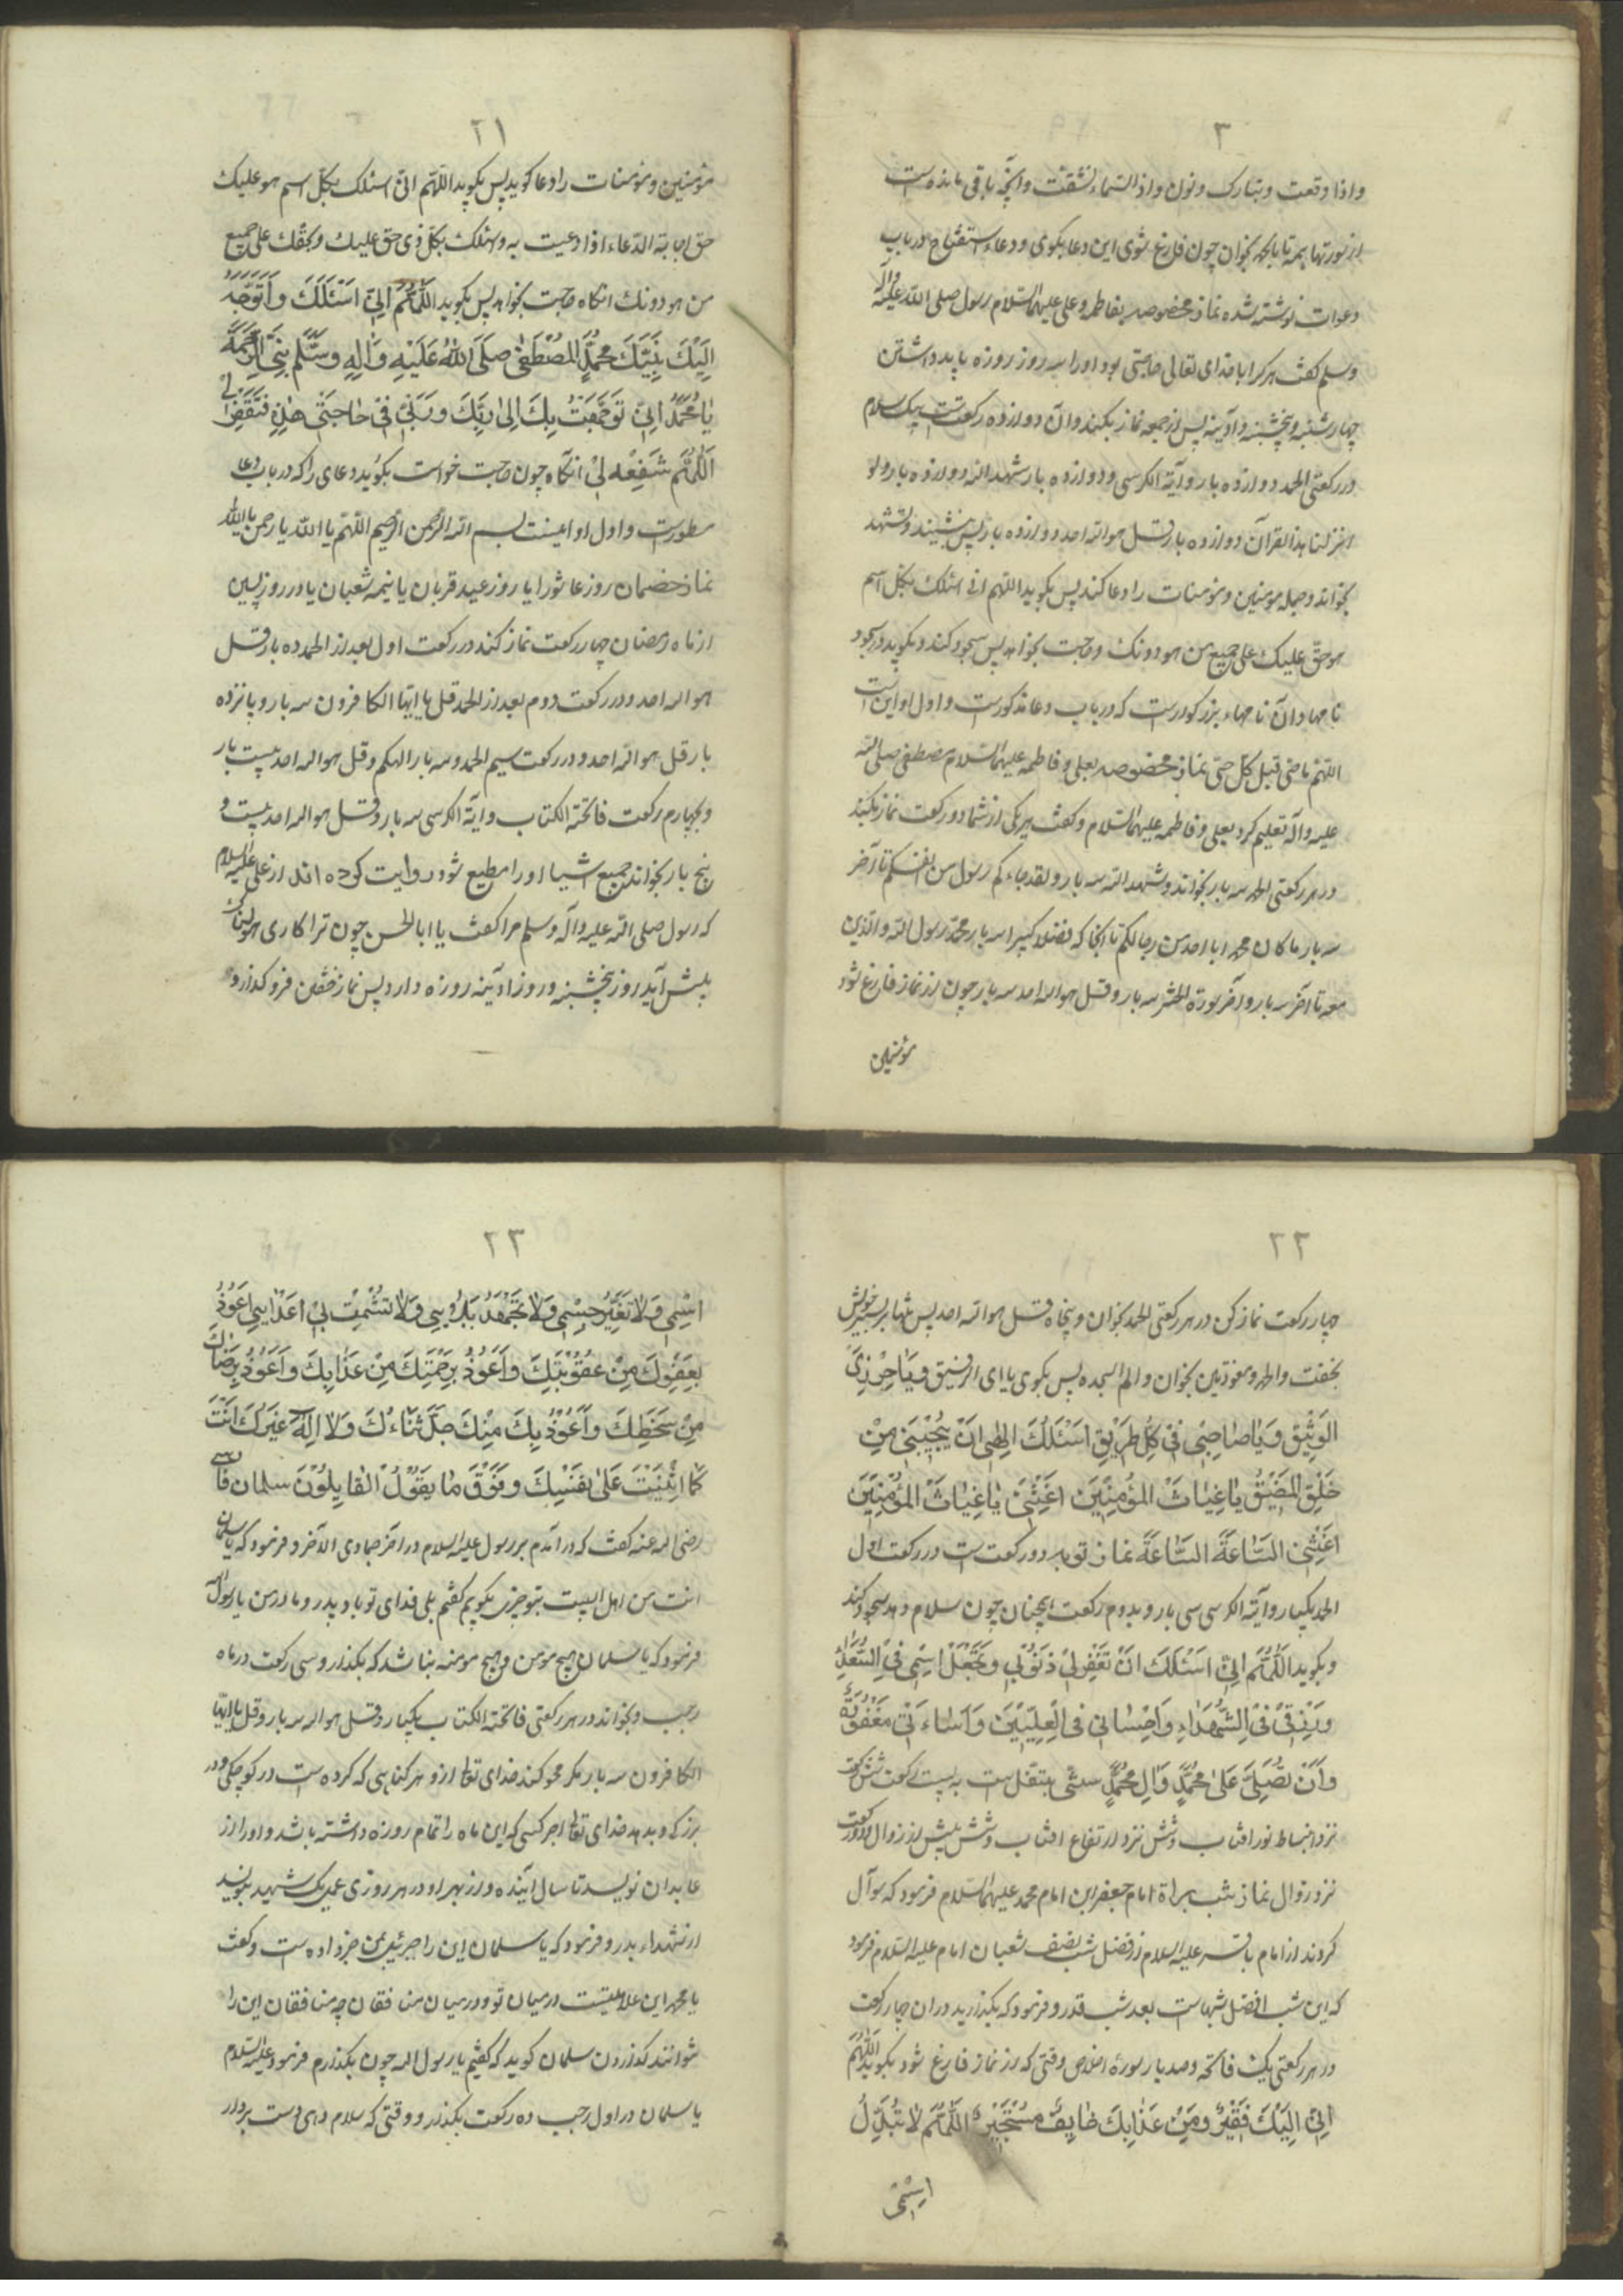 ٣
واذا وقعت و تبارک و نون و اذا السماء انشقت و آنچه باقی مانده است
از سورتها همه تا بآخر بخوان چون فارغ شوی این دعا بکوی و دعاء استفتاح در باب
دعوات نوشته شده نماز مخصوصه بفاطمه و علی علیهما السلام رسول صلی الله علیه وآله
وسلم کفت هرکرا با خدای تعالی حاجتی بود اورا سه روز روزه باید داشتن
چهارشنبه و پنجشنبه و آدینه پس از جمعه نماز بکند و آن دوازده رکعتست بیک سلام
در رکعتی الحمد دوازده بار و آیة الکرسی و دوازده بار شهد الله و دوازده بار و لو
انزلنا هذا القرآن دوازده بار قل هو الله احد دوازده بار پس بنشیند و تشهد
بخواند و جمله مومنین و مؤمنات را دعا کند پس بکوید اللهم انی اسئلک بکل اسم
هو حق علیک علی جمیع من هو دونک و حاجت بخواهد پس سجود کند و بکوید در سجود
نامها و آن نامهاء بزرکوارست که در باب دعا مذکورست و اول او این است
اللهم یا حی قبل کل حی نماز مخصوصه بعلی و فاطمه علیهما السلام مصطفی صلی الله
علیه وآله تعلیم کرد بعلی و فاطمه علیهما السلام و کفت هر یکی از شما دو رکعت نماز بکنید
در هر رکعتی الحمد سه بار بخواند و شهد الله سه بار و لقد جاءکم رسول من انفسکم تا آخر
سه بار ما کان محمد ابا احد من رجالکم تا آنجا که فضلا کبیرا سه بار محمد رسول الله والذین
معه تا آخر سه بار و آخر سورة الحشر سه بار و قل هو الله احد سه بار چون از نماز فارغ شود
مؤمنین
٢١
مؤمنین و مؤمنات را دعا کوید پس بکوید اللهم انی اسئلک بکل اسم هو علیک
حق اجابة الدعاء اذا دعیت به و اسئلک بکل ذی حق علیک و بحقک علی جمیع
من هو دونک انکاه حاجت بخواهد پس بکوید اَللّهُمَّ اِنّی اَسْئَلُکَ وَاَتَوَجَّهُ
اِلَیْکَ بِنَبِیِّکَ مُحَمَّدٍ المُصْطَفی صَلَّی اللّهُ عَلَیْهِ وَالِهِ وَسَلَّم نَبِیِّ الرَّحْمَةِ
یامُحَمَّدُ اِنّی تَوَجَّهْتُ بِکَ اِلی رَبِّکَ وَرَبّی فی حاجَتی هذِهِ فَتَقْضی لی
اَللّهُمَّ شَفِّعْهُ لی انکاه چون حاجت خواست بکوید دعای را که در باب دعا
مسطورست و اول او اینست بسم الله الرحمن الرحیم اللهم یا الله یا رحمن یا الله
نماز خصمان روز عاشورا یا روز عید قربان یا نیمه شعبان یا در روز پسین
از ماه رمضان چهار رکعت نماز کند در رکعت اول بعد از الحمد ده بار قل
هو الله احد و در رکعت دوم بعد از الحمد قل یا ایها الکافرون سه بار و پانزده
بار قل هو الله احد و در رکعت سیم الحمد و سه بار الهیکم و قل هو الله احد بیست بار
و بچهارم رکعت فاتحة الکتاب و ایة الکرسی سه بار و قل هو الله احد بیست و
پنج بار بخواند جمیع اشیا او را مطیع شود روایت کرده اند از علی علیه السلام
که رسول صلی الله علیه وآله وسلم مرا کفت یا ابا الحسن چون ترا کاری هولناک
پیش آید روز پنجشنبه و روز آدینه روزه دار و پس نماز خفتن فرو کذار و
٢٢
چهار رکعت نماز کن در هر رکعتی الحمد بخوان و پنجاه قل هو الله احد پس تنها بر بستر خویش
بخفت و الحمد و معوذتین بخوان و الم السجده پس بکوی یا ای الرفیق وَیاحِرْزِیَ
الوَثیقِ وَیاصاحِبی فی کُلِّ طَریقٍ اَسْئَلُکَ اِلهی اَنْ یُجیبَنی مِنْ
حَلَقِ المَضیقِ یاغِیاثَ المُؤمِنینَ اَغِثْنی یاغِیاثَ المُؤمِنینَ
اَغِثْنی السّاعَةَ السّاعَةَ نماز توبه دو رکعت است در رکعت اول
الحمد یکبار و آیة الکرسی سی بار و بدوم رکعت همچنان چون سلام دهد سجود کند
و بکوید اَللّهُمَّ اِنّی اَسْئَلُکَ اَنْ تَغْفِرَلی ذُنُوبی وَتَجْعَلَ اسْمی فی السُّعَداءِ
وَرِزْقی فی الشُّهَداءِ وَاِحْسانی فی العِلِّیِّینَ وَاَساءَتی مَغْفُورَةً
وَاَنْ تُصَلِّیَ عَلی مُحَمَّدٍ وَالِ مُحَمَّدٍ
نزد انبساط نور افتاب و شش نزد ارتفاع افتاب و شش پیش از زوال و دو رکعت
نزد زوال نماز شب براة امام جعفر ابن امام محمد علیهما السلام فرمود که سوآل
کردند از امام باقر علیه السلام از فضل شب نصف شعبان امام علیه السلام فرمود
که این شب افضل شبهاست بعد شب قدر و فرمود که بکذارید دران چهار رکعت
در هر رکعتی یک فاتحه و صد بار سورهٔ اخلاص وقتی که از نماز فارغ شود بکوید اَللّهُمَّ
اِنّی اِلَیْکَ فَقیرٌ وَمِنْ عَذابِکَ خایِفٌ مُسْتَجیرٌ اَللّهُمَّ لاتُبَدِّلْ
اِسْمی
٢٣
اسْمی وَلاتُغَیِّرْ جِسْمی وَلاتَجْهَدْ بَلائی وَلاتُشْمِتْ بی اَعْدائی اَعُوذُ
بِعَفْوِکَ مِنْ عُقُوبَتِکَ وَاَعُوذُ بِرَحْمَتِکَ مِنْ عَذابِکَ وَاَعُوذُ بِرِضاکَ
مِنْ سَخَطِکَ وَاَعُوذُ بِکَ مِنْکَ جَلَّ ثَناءُکَ وَلااِلهَ غَیْرُکَ اَنْتَ
کَما اَثْنَیْتَ عَلی نَفْسِکَ وَفَوْقَ مایَقُولُ القایِلُونَ سلمان فارسی
رضی الله عنه کفت که درآمدم بر رسول علیه السلام در آخر جمادی الآخر و فرمود که یا سلمان
انت من اهل البیت بتو چیزی بکویم کفتم بلی فدای تو باد پدر و مادر من یا رسول الله
فرمود که یا سلمان هیچ مؤمن و هیچ مومنه نباشد که بکذارد سی رکعت در ماه
رجب و بخواند در هر رکعتی فاتحة الکتاب یکبار و قل هو الله سه بار و قل یا ایها
الکافرون سه بار مکر محو کند خدای تعالی ازو هر کناهی که کرده است در کوچکی و در
بزرکی و بدهد خدای تعالی اجر کسی که این ماه را تمام روزه داشته باشد و او را از
عابدان نویسد تا سال آینده و از بهر او در هر روزی عمل یک شهید بنویسد
از شهداء بدر و فرمود که یا سلمان این را جبرئیل بمن خبر داده است و کفت
یا محمد این علامتیست درمیان تو و درمیان منافقان چه منافقان این را
نتوانند کذاردن سلمان کوید که کفتم یا رسول الله چون بکذارم فرمود علیه السلام
یا سلمان در اول رجب ده رکعت بکذار و وقتی که سلام دهی دست بردار